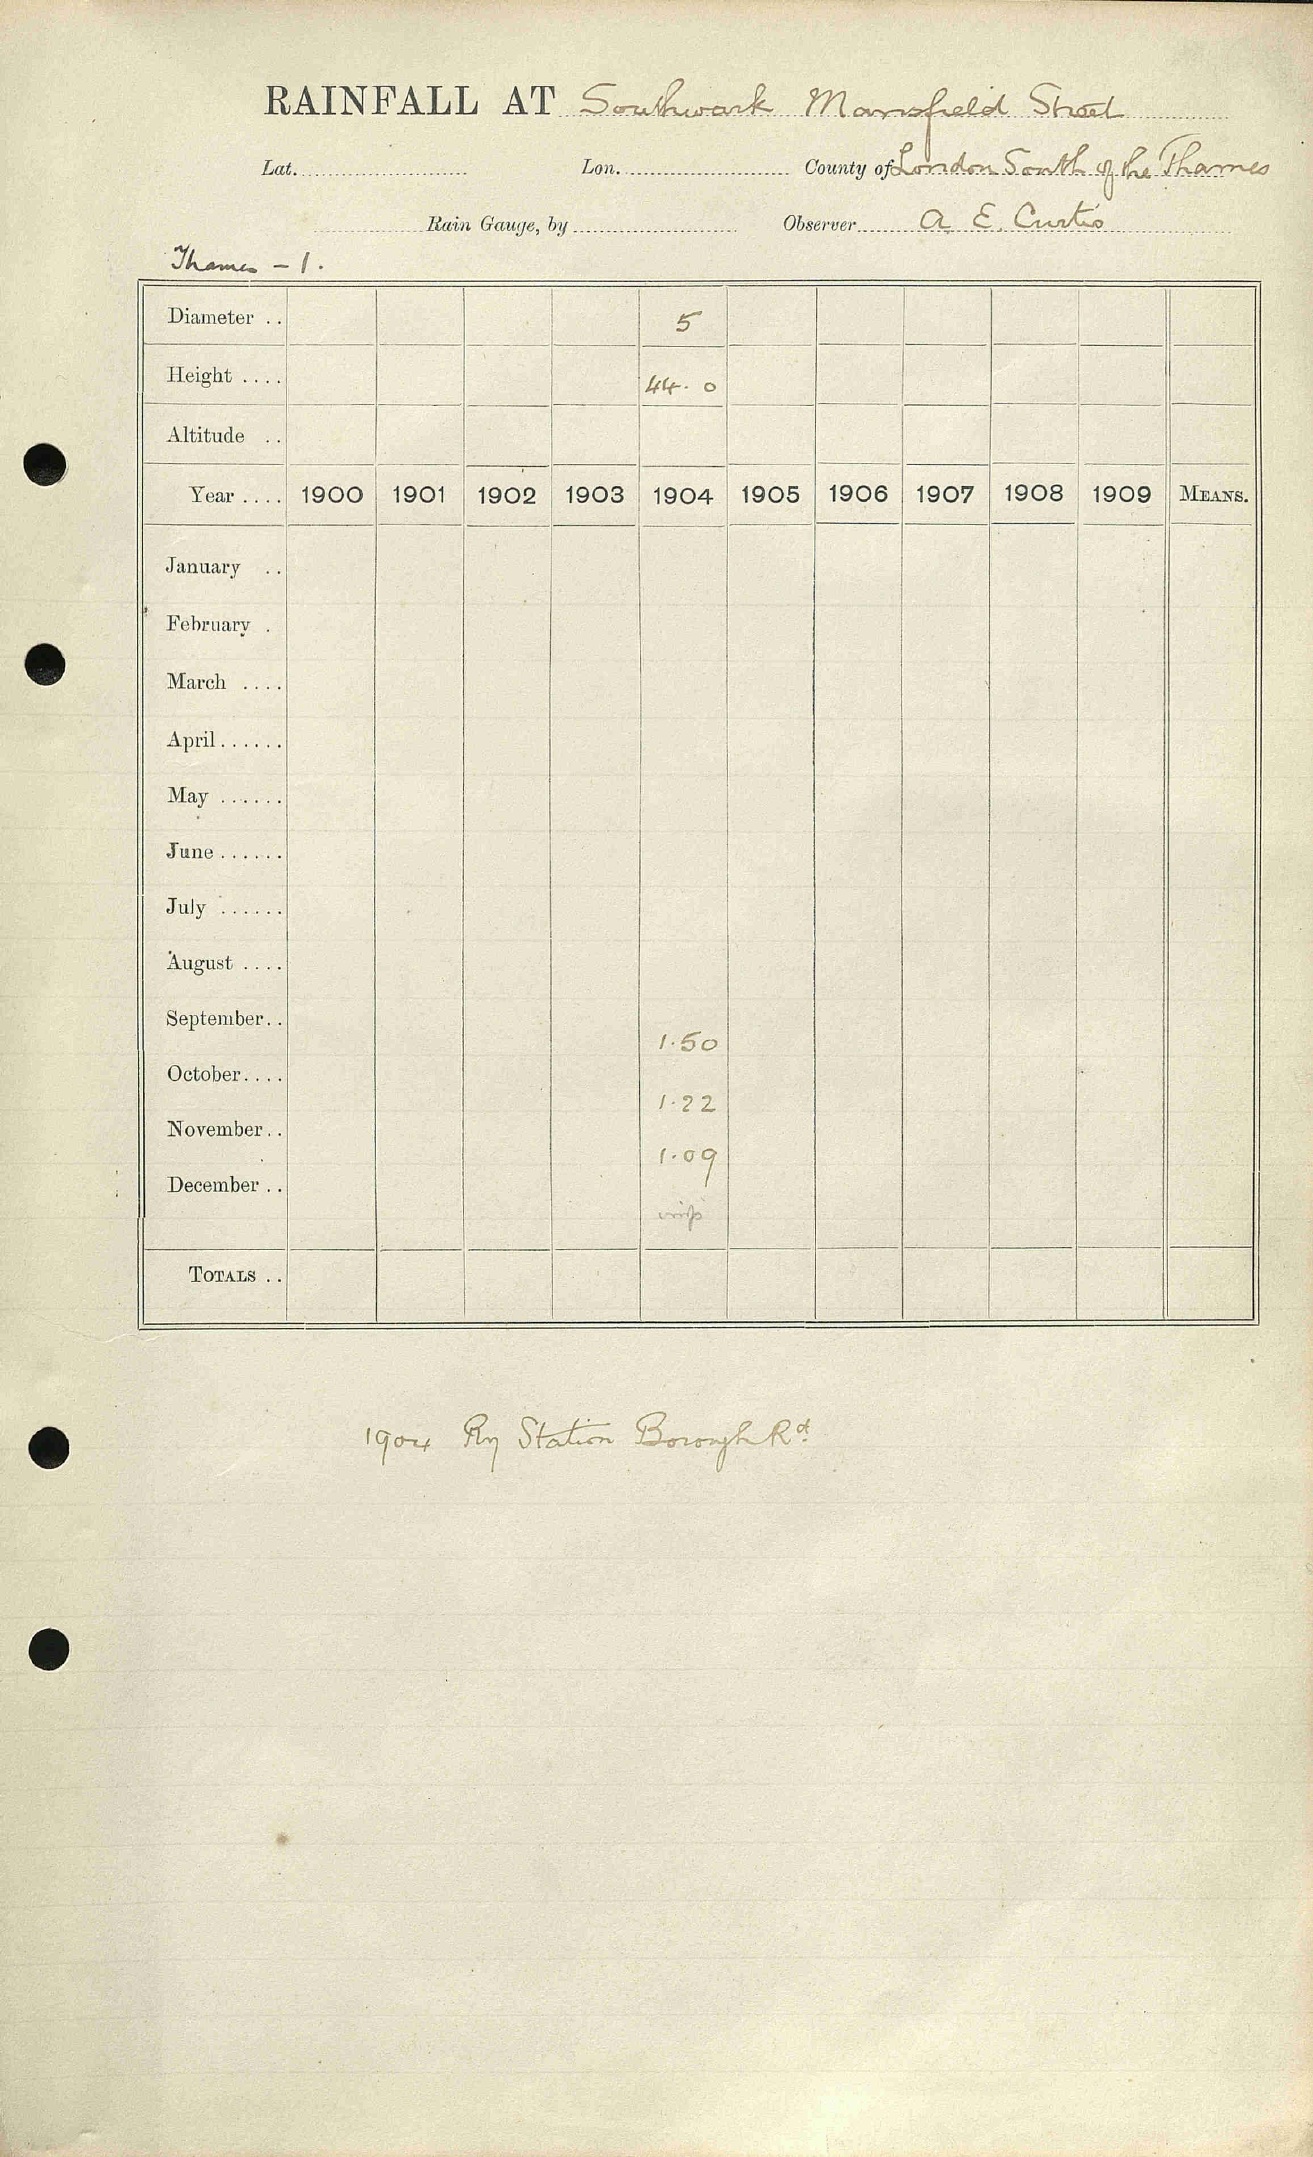 RAINFALL AT Southwark Mansfield Street
Lat. Lon. County of London South of the Thames
Rain Gauge, by Observer A. E. Curtis
Thames - 1.
Diameter .. 5
Height .... 44. 0
Altitude ..
Year .... 1900 1901 1902 1903 1904 1905 1906 1907 1908 1909 MEANS.
January ..
February .
March ....
April ......
May ......
June ......
July ......
August ....
September.. 1.50
October.... 1.22
November.. 1.09
December ..
TOTALS ..
1904 Ry Station Borough Rd.